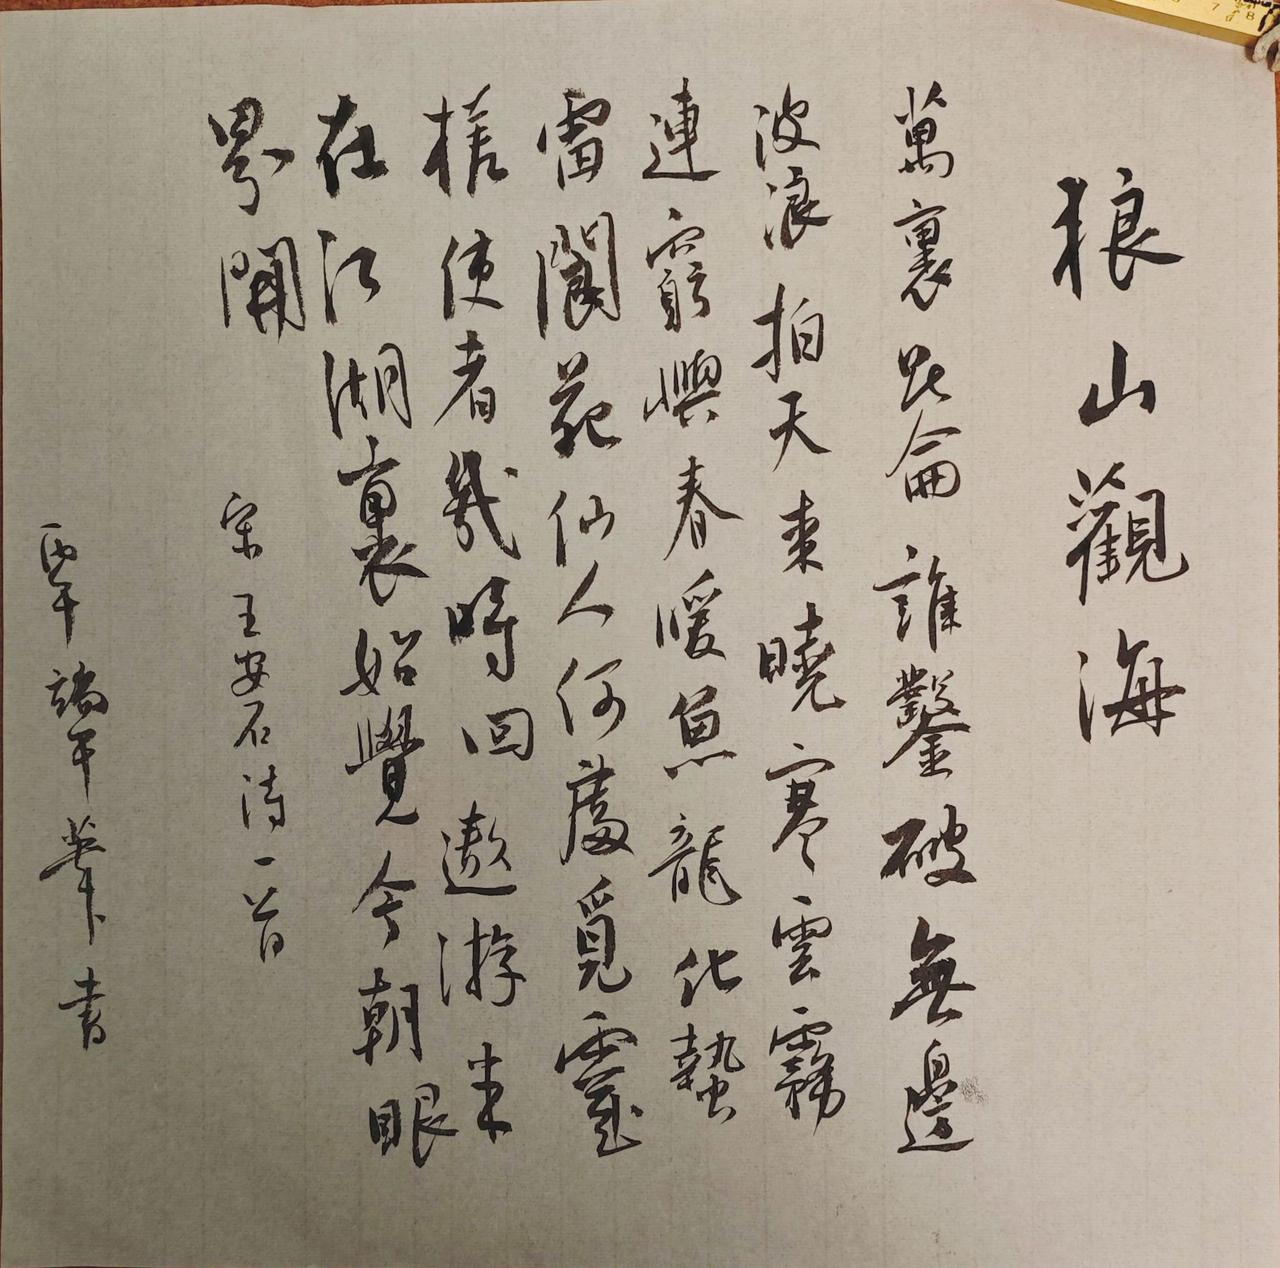 狼山觀海
萬裏昆侖誰鑿破無邊
波浪拍天來曉寒雲霧
連窮嶼春暖魚龍化蟄
雷閬苑仙人何處覓靈
槎使者幾時回遨游半
在江湖裏始覺今朝眼
界開
宋王安石詩一首
丙午端午書
7 8